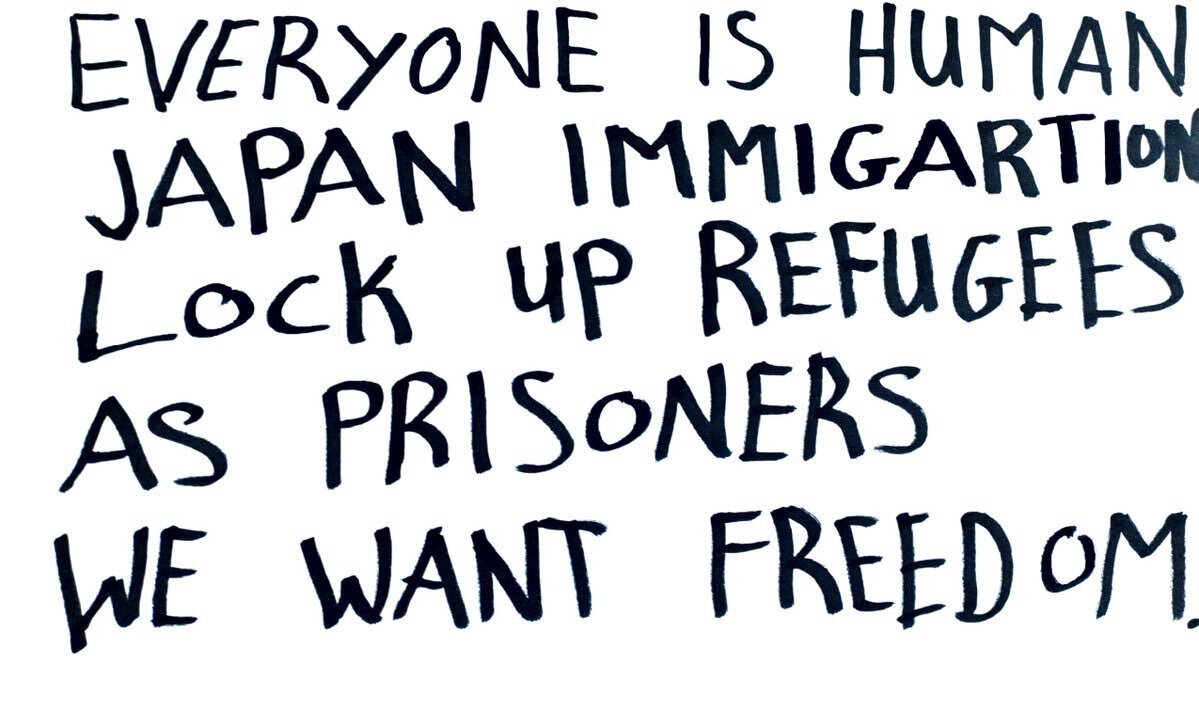 EVERYONE IS HUMAN
JAPAN IMMIGARTION
LOCK UP REFUGEES
AS PRISONERS
WE WANT FREEDOM.